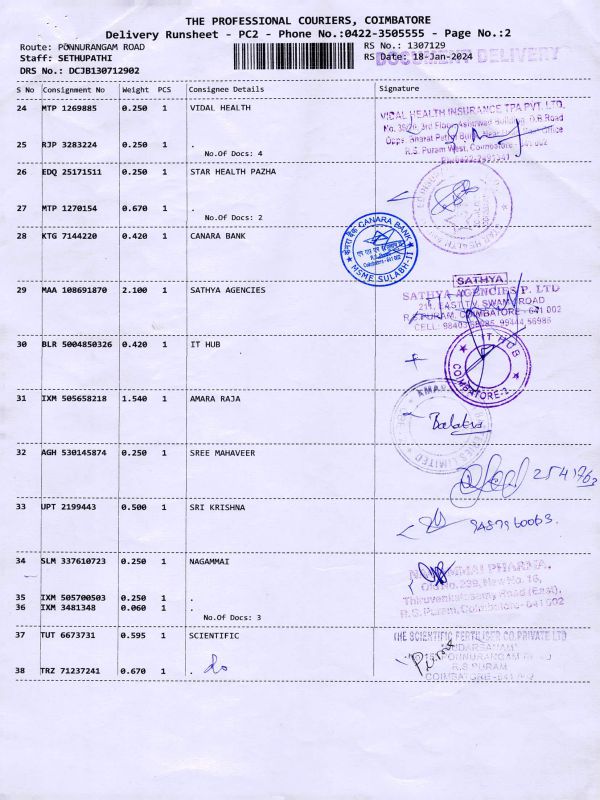 THE PROFESSIONAL COURIERS, COIMBATORE
Delivery Runsheet - PC2 - Phone No.:0422-3505555 - Page No.:2
Route: PONNURANGAM ROAD
RS No.: 1307129
Staff: SETHUPATHI
RS Date: 18-Jan-2024
DOCUMENT DELIVERY
DRS No.: DCJB130712902
S No Consignment No Weight PCS Consignee Details Signature
24 MTP 1269885 0.250 1 VIDAL HEALTH
VIDAL HEALTH INSURANCE TPA PVT. LTD.
R.S. Puram West, Coimbatore
25 RJP 3283224 0.250 1 .
No.Of Docs: 4
26 EDQ 25171511 0.250 1 STAR HEALTH PAZHA
27 MTP 1270154 0.670 1 .
No.Of Docs: 2
28 KTG 7144220 0.420 1 CANARA BANK
केनरा बैंक CANARA BANK
Coimbatore - 641 002
MSME SULABH-II
29 MAA 108691870 2.100 1 SATHYA AGENCIES
SATHYA
SATHYA AGENCIES P. LTD
211, EAST T.V. SWAMY ROAD
R.S.PURAM, COIMBATORE - 641 002
30 BLR 5004850326 0.420 1 IT HUB
IT HUB
COIMBATORE-2
31 IXM 505658218 1.540 1 AMARA RAJA
32 AGH 530145874 0.250 1 SREE MAHAVEER
33 UPT 2199443 0.500 1 SRI KRISHNA
34 SLM 337610723 0.250 1 NAGAMMAI
NAGAMMAI PHARMA,
Old No. 239, New No. 16,
Thiruvenkatasamy Road (East),
R.S. Puram, Coimbatore - 641 002
35 IXM 505700503 0.250 1 .
36 IXM 3481348 0.060 1 .
No.Of Docs: 3
37 TUT 6673731 0.595 1 SCIENTIFIC
THE SCIENTIFIC FERTILISER CO.PRIVATE LTD
PONNURANGAM ROAD
R.S.PURAM
38 TRZ 71237241 0.670 1 .